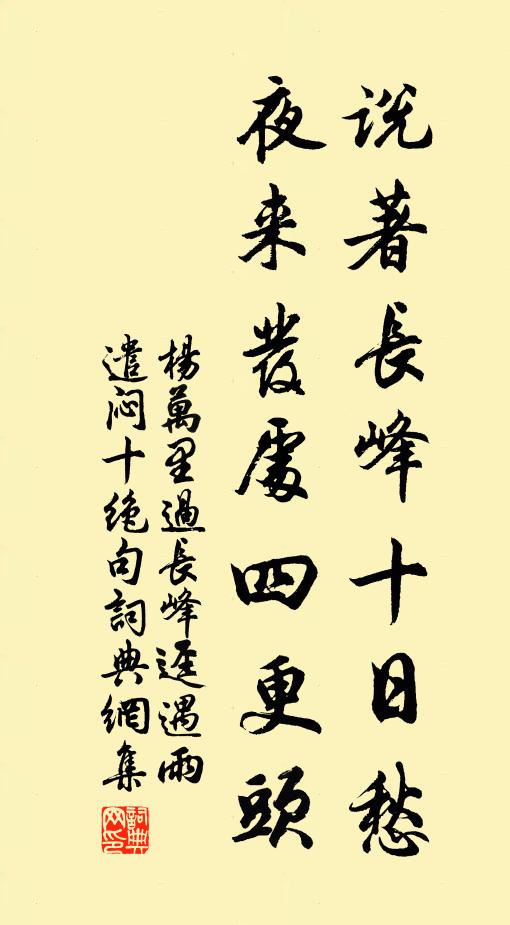 说著長峰十日愁
夜来發處四更頭
楊萬里過長峰遥遇雨
遣闷十绝句詞典網集
詞典網印